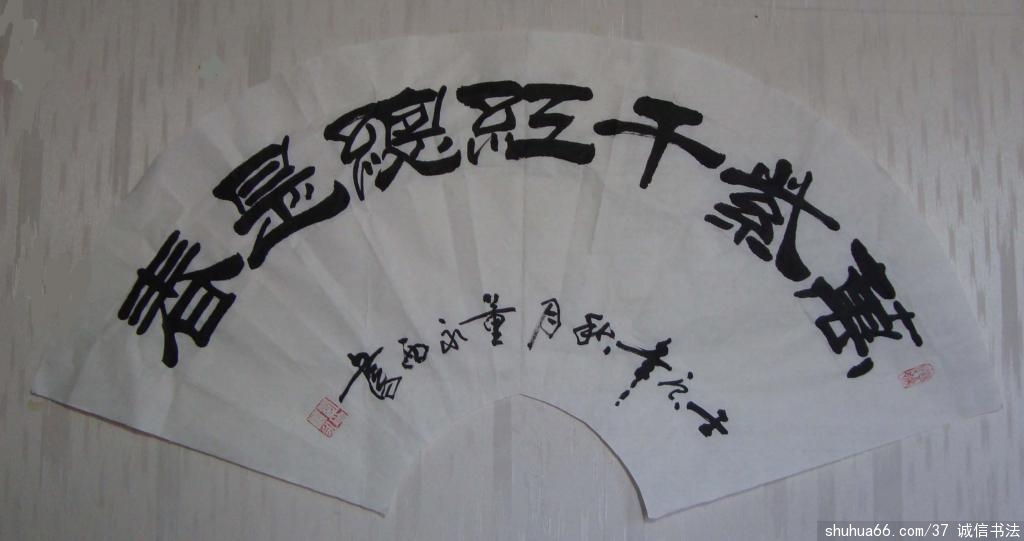 萬紫千紅總是春
年秋月董永西書
shuhua66.com/37 诚信书法